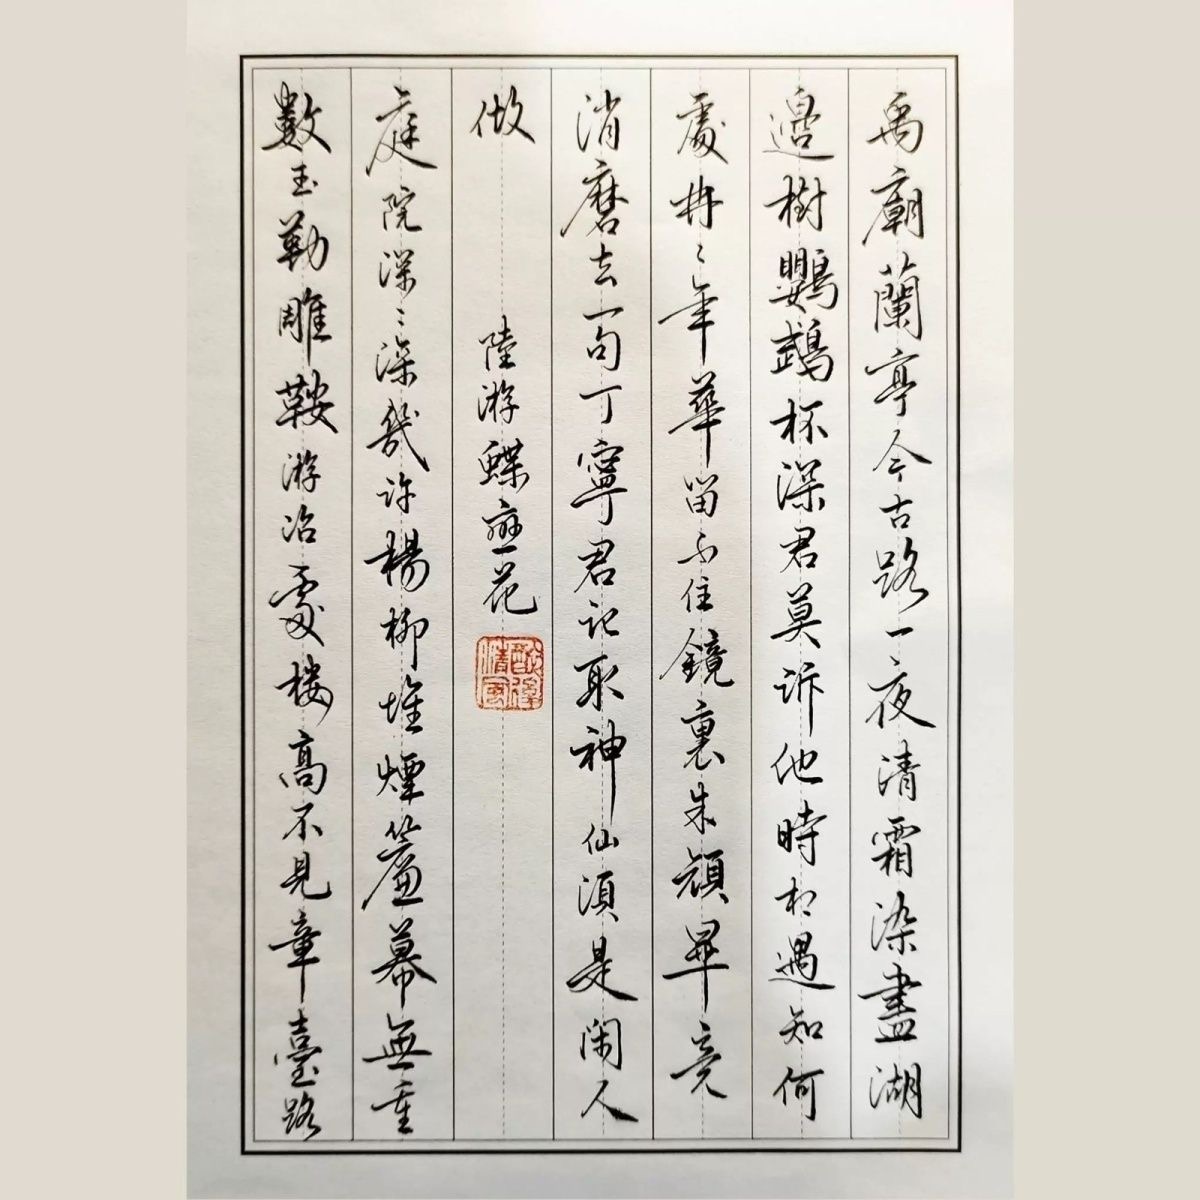 禹廟蘭亭今古路一夜清霜染盡湖
邊樹鸚鵡杯深君莫訴他時相遇知何
處冉〻年華留不住鏡裏朱顏畢竟
消磨去一句丁寧君記取神仙須是閑人
做
陸游蝶戀花
庭院深〻深幾許楊柳堆煙簾幕無重
數玉勒雕鞍游冶處樓高不見章臺路